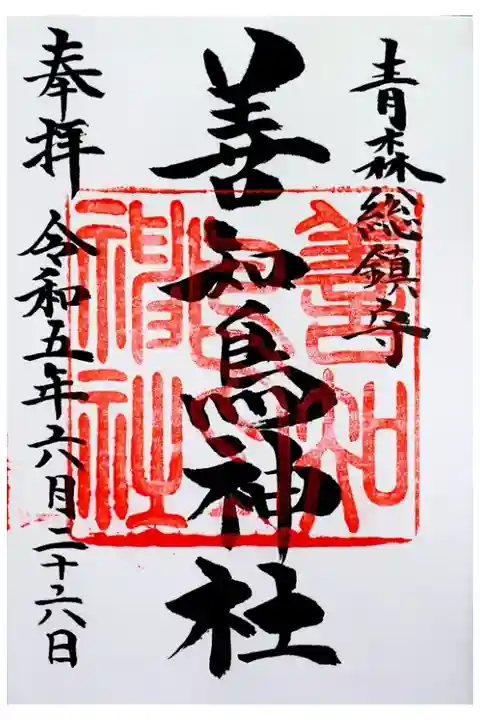 青森総鎮守
善知鳥神社
奉拝 令和五年六月二十六日
善知鳥神社